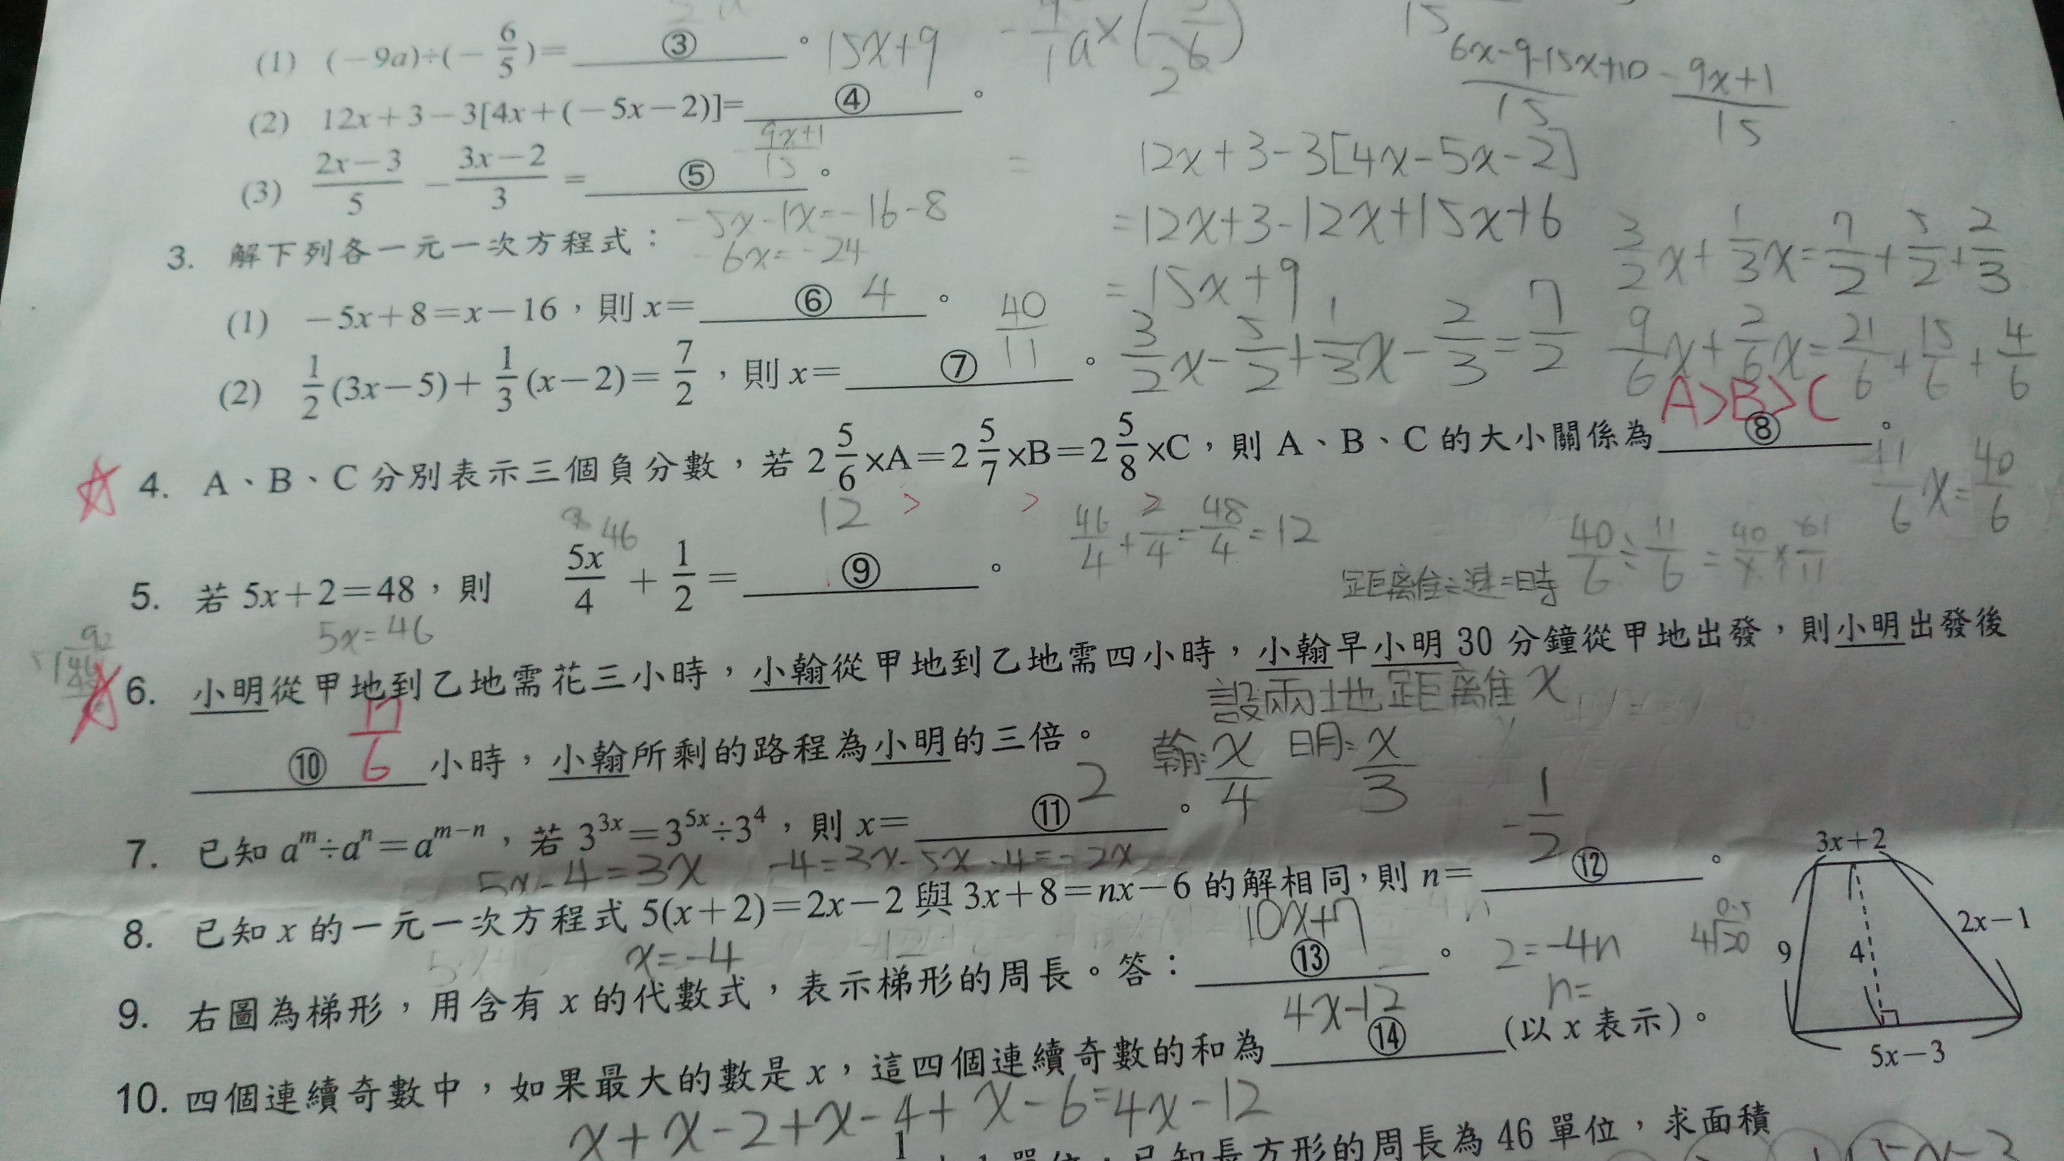 (1) (－9a)÷(－6/5)= ③ 。
15x+9
(2) 12x＋3－3[4x＋(－5x－2)]= ④ 。
6x-9-15x+10/15 -9x+1/15
(3) 2x－3/5 －3x－2/3 = ⑤ 。
-9x+1/15
12x+3-3[4x-5x-2]
=12x+3-12x+15x+6
=15x+9
3. 解下列各一元一次方程式：
-5x-1x=-16-8
-6x=-24
(1) －5x＋8＝x－16，則 x＝ ⑥ 4 。
(2) 1/2(3x－5)＋1/3(x－2)＝7/2，則 x＝ ⑦ 40/11 。
3/2x-5/2+1/3x-2/3=7/2
3/2x+1/3x=7/2+5/2+2/3
9/6x+2/6x=21/6+15/6+4/6
11/6x=40/6
4. A、B、C 分別表示三個負分數，若 2 5/6×A＝2 5/7×B＝2 5/8×C，則 A、B、C 的大小關係為 ⑧ 。
A>B>C
> >
5. 若 5x＋2＝48，則 5x/4 ＋ 1/2 ＝ ⑨ 。
46
12
46/4+2/4=48/4=12
5x=46
距離÷速=時
6. 小明從甲地到乙地需花三小時，小翰從甲地到乙地需四小時，小翰早小明 30 分鐘從甲地出發，則小明出發後
⑩ 17/6 小時，小翰所剩的路程為小明的三倍。
設兩地距離x
翰:x/4 明:x/3
7. 已知 aᵐ÷aⁿ＝aᵐ⁻ⁿ，若 3³ˣ＝3⁵ˣ÷3⁴，則 x＝ ⑪ 2 。
5x-4=3x -4=3x-5x -4=-2x
8. 已知 x 的一元一次方程式 5(x＋2)＝2x－2 與 3x＋8＝nx－6 的解相同，則 n＝ ⑫ 。
-1/2
x=-4
2=-4n
n=
9. 右圖為梯形，用含有 x 的代數式，表示梯形的周長。答： ⑬ 。
10x+7
3x＋2
9
4
2x－1
5x－3
10. 四個連續奇數中，如果最大的數是 x，這四個連續奇數的和為 ⑭ (以 x 表示)。
4x-12
x+x-2+x-4+x-6=4x-12
單位，已知長方形的周長為 46 單位，求面積